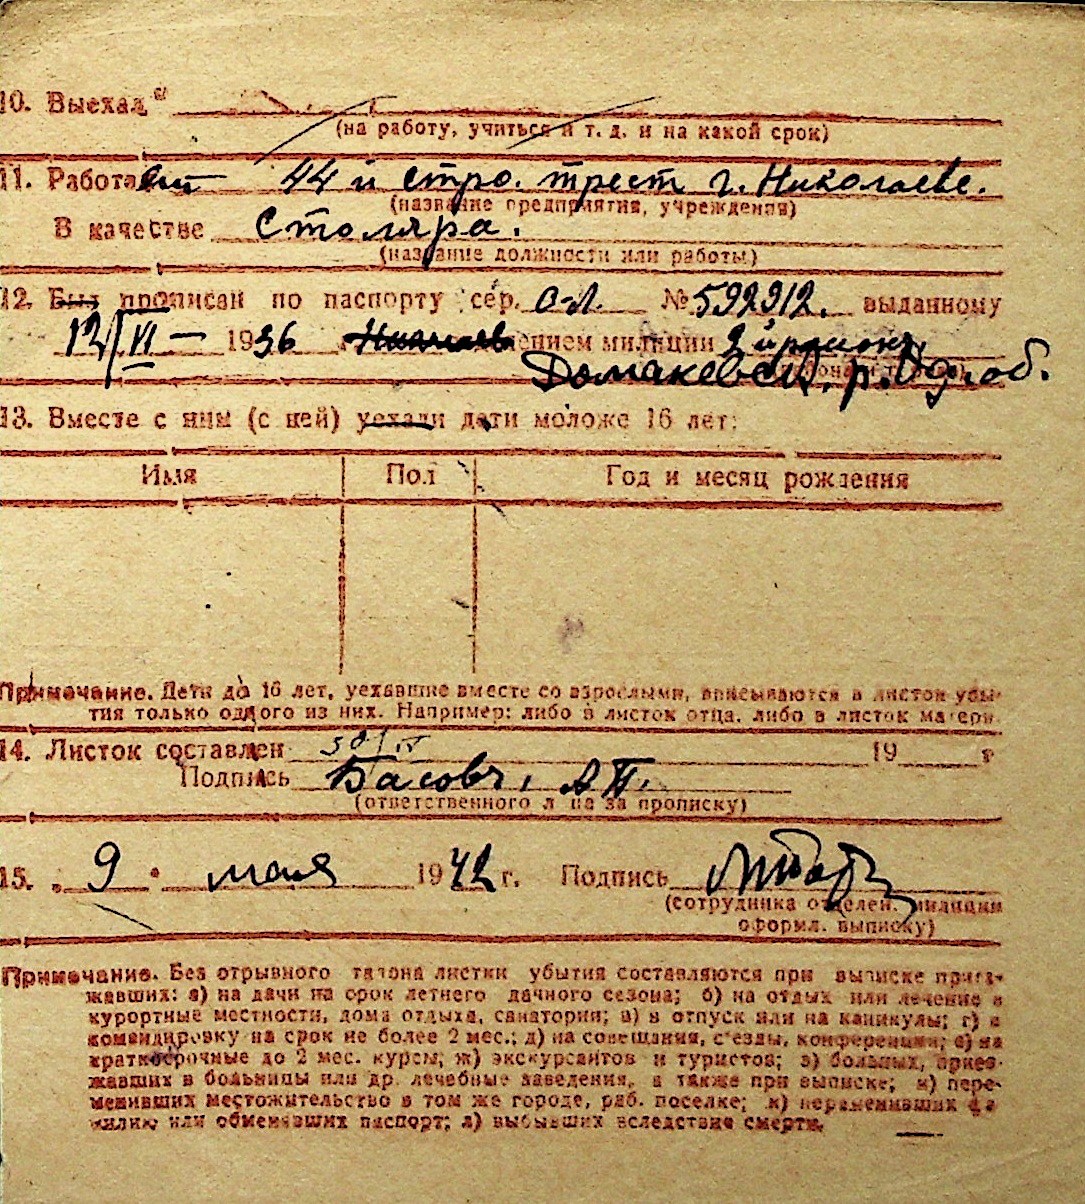 10. Выехал
(на работу, учиться и т. д. и на какой срок)
11. Работа 44 й стро. трест г. Николаеве.
(название предприятия, учреждения)
В качестве Столяра.
(название должности или работы)
12. Был прописан по паспорту сер. № 592912. выданному
12/VI — 1936 ением милиции 2 й район
Домакевск. р. Од. об.
13. Вместе с ним (с ней) уехали дети моложе 16 лет:
Имя Пол Год и месяц рождения
Примечание. Дети до 16 лет, уехавшие вместе со взрослыми, вписываются в листок убы-
тия только одного из них. Например: либо в листок отца, либо в листок матери.
14. Листок составлен 19 г
Подпись
(ответственного л ца за прописку)
15. „ 9 " мая 1942 г. Подпись
(сотрудника отделен. милиции
оформл. выписку)
Примечание. Без отрывного талона листки убытия составляются при выписке приез-
жавших: а) на дачи на срок летнего дачного сезона; б) на отдых или лечение в
курортные местности, дома отдыха, санатории; в) в отпуск или на каникулы; г) в
командировку на срок не более 2 мес.; д) на совещания, с'езды, конференции; е) на
краткосрочные до 2 мес. курсы; ж) экскурсантов и туристов; з) больных, приез-
жавших в больницы или др. лечебные заведения, а также при выписке; и) пере-
менивших местожительство в том же городе, раб. поселке; к) переменивших фа-
милию или обменявших паспорт; л) выбывших вследствие смерти.